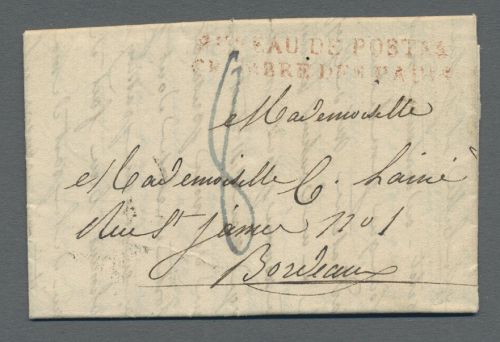 BUREAU DE POSTES
CHAMBRE DES PAIRS
8
Mademoiselle
Mademoiselle C. Lainé
Rue St james no 1
Bordeaux